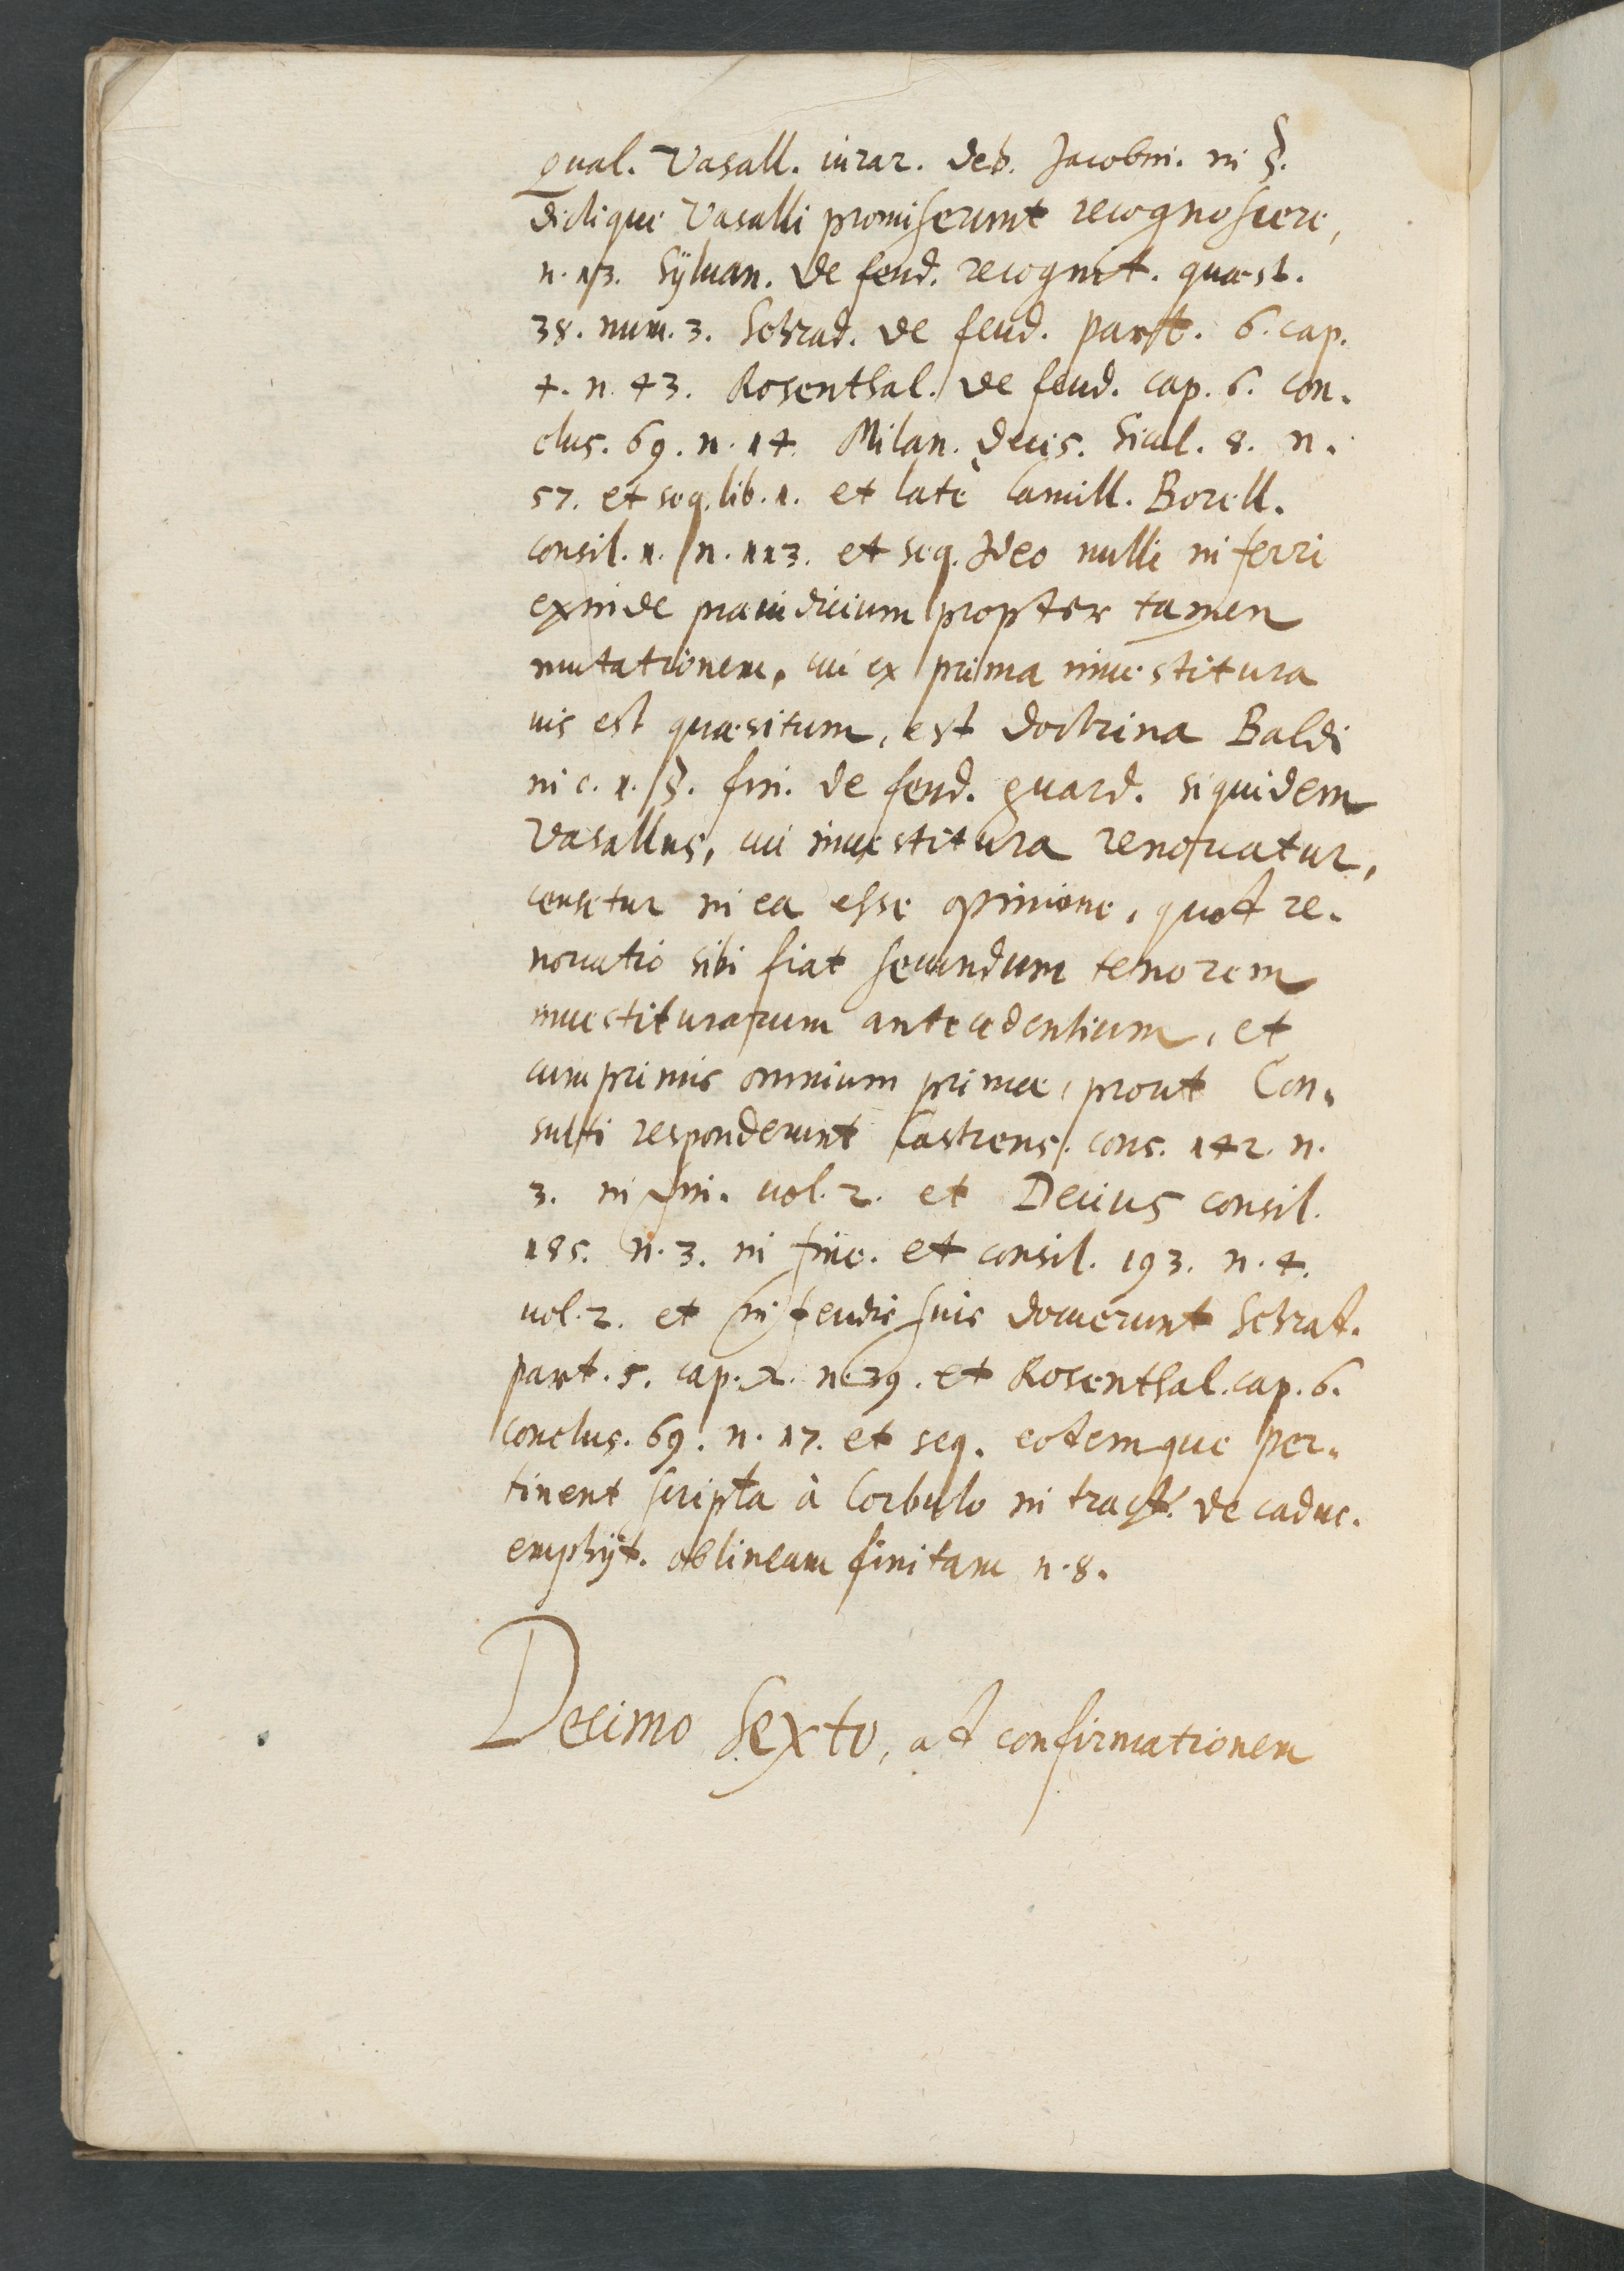 qual. Vasall. iurar. deb. Jacobin. in §.
dictique Vasalli promiserunt recognoscere,
n. 13. Sÿluan. de feud. recognit. quæst.
38. num. 3. Schrad. de feud. part. 6. cap.
4. n. 43. Rosenthal. de feud. cap. 6. con-
clus. 69. n. 14. Milan. decis. Sicul. 8. n.
57. et seq. lib. 1. et latè Camill. Borell.
consil. 1. n. 113. et seq. Ideo nulli inferri
exinde præiudicium propter tamen
mutationem, cui ex prima inuestitura
ius est quæsitum, est doctrina Baldi
in c. 1. §. fin. de feud. guard. siquidem
Vasallus, cui inuestitura renouatur,
censetur in ea esse opinione, quod re-
nouatio sibi fiat secundum tenorem
inuestiturarum antecedentium, et
cumprimis omnium primæ, prout Con-
sulti responderunt Castrens. cons. 142. n.
3. in fin. vol. 2. et Decius consil.
185. n. 3. in fine. et consil. 193. n. 4.
vol. 2. et in feudis suis docuerunt Schrad.
part. 5. cap. 2. n. 39. et Rosenthal. cap. 6.
conclus. 69. n. 17. et seq. eodemque per-
tinent scripta à Corbulo in tract. de caduc.
emphÿt. ob lineam finitam n. 8.
Decimo Sexto, ad confirmationem